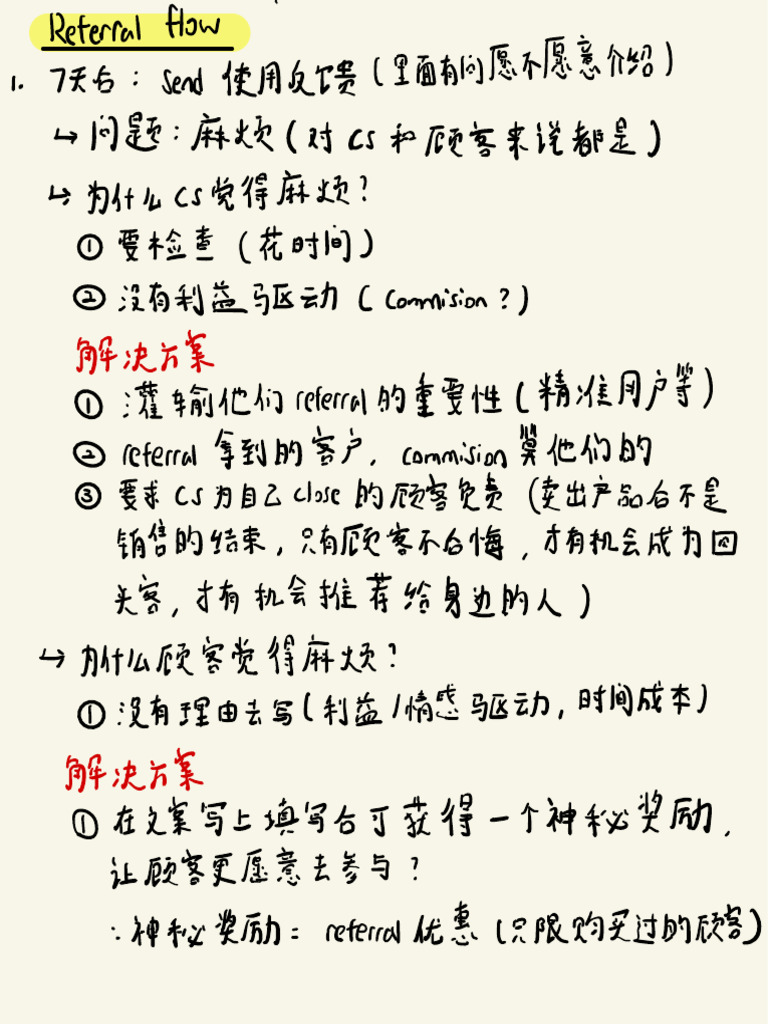 Referral flow
1. 7天后：Send 使用反馈（里面有问愿不愿意介绍）
↳ 问题：麻烦（对 CS 和顾客来说都是）
↳ 为什么 CS 觉得麻烦？
① 要检查（花时间）
② 没有利益驱动（Commision？）
解决方案
① 灌输他们 referral 的重要性（精准用户等）
② referral 拿到的客户，commision 算他们的
③ 要求 CS 为自己 close 的顾客负责（卖出产品后不是
销售的结束，只有顾客不后悔，才有机会成为回
头客，才有机会推荐给身边的人）
↳ 为什么顾客觉得麻烦？
① 没有理由去写（利益/情感驱动，时间成本）
解决方案
① 在文案写上填写后可获得一个神秘奖励，
让顾客更愿意去参与？
∵神秘奖励 = referral 优惠（只限购买过的顾客）